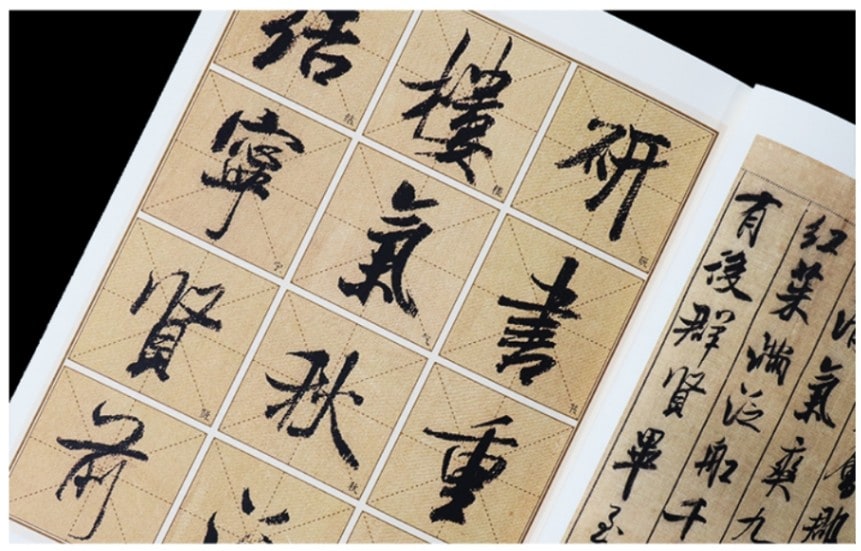 會郡
清氣爽九
紅茱滿泛船千
有後群賢畢至
研書重
樓氣秋
結寧賢前